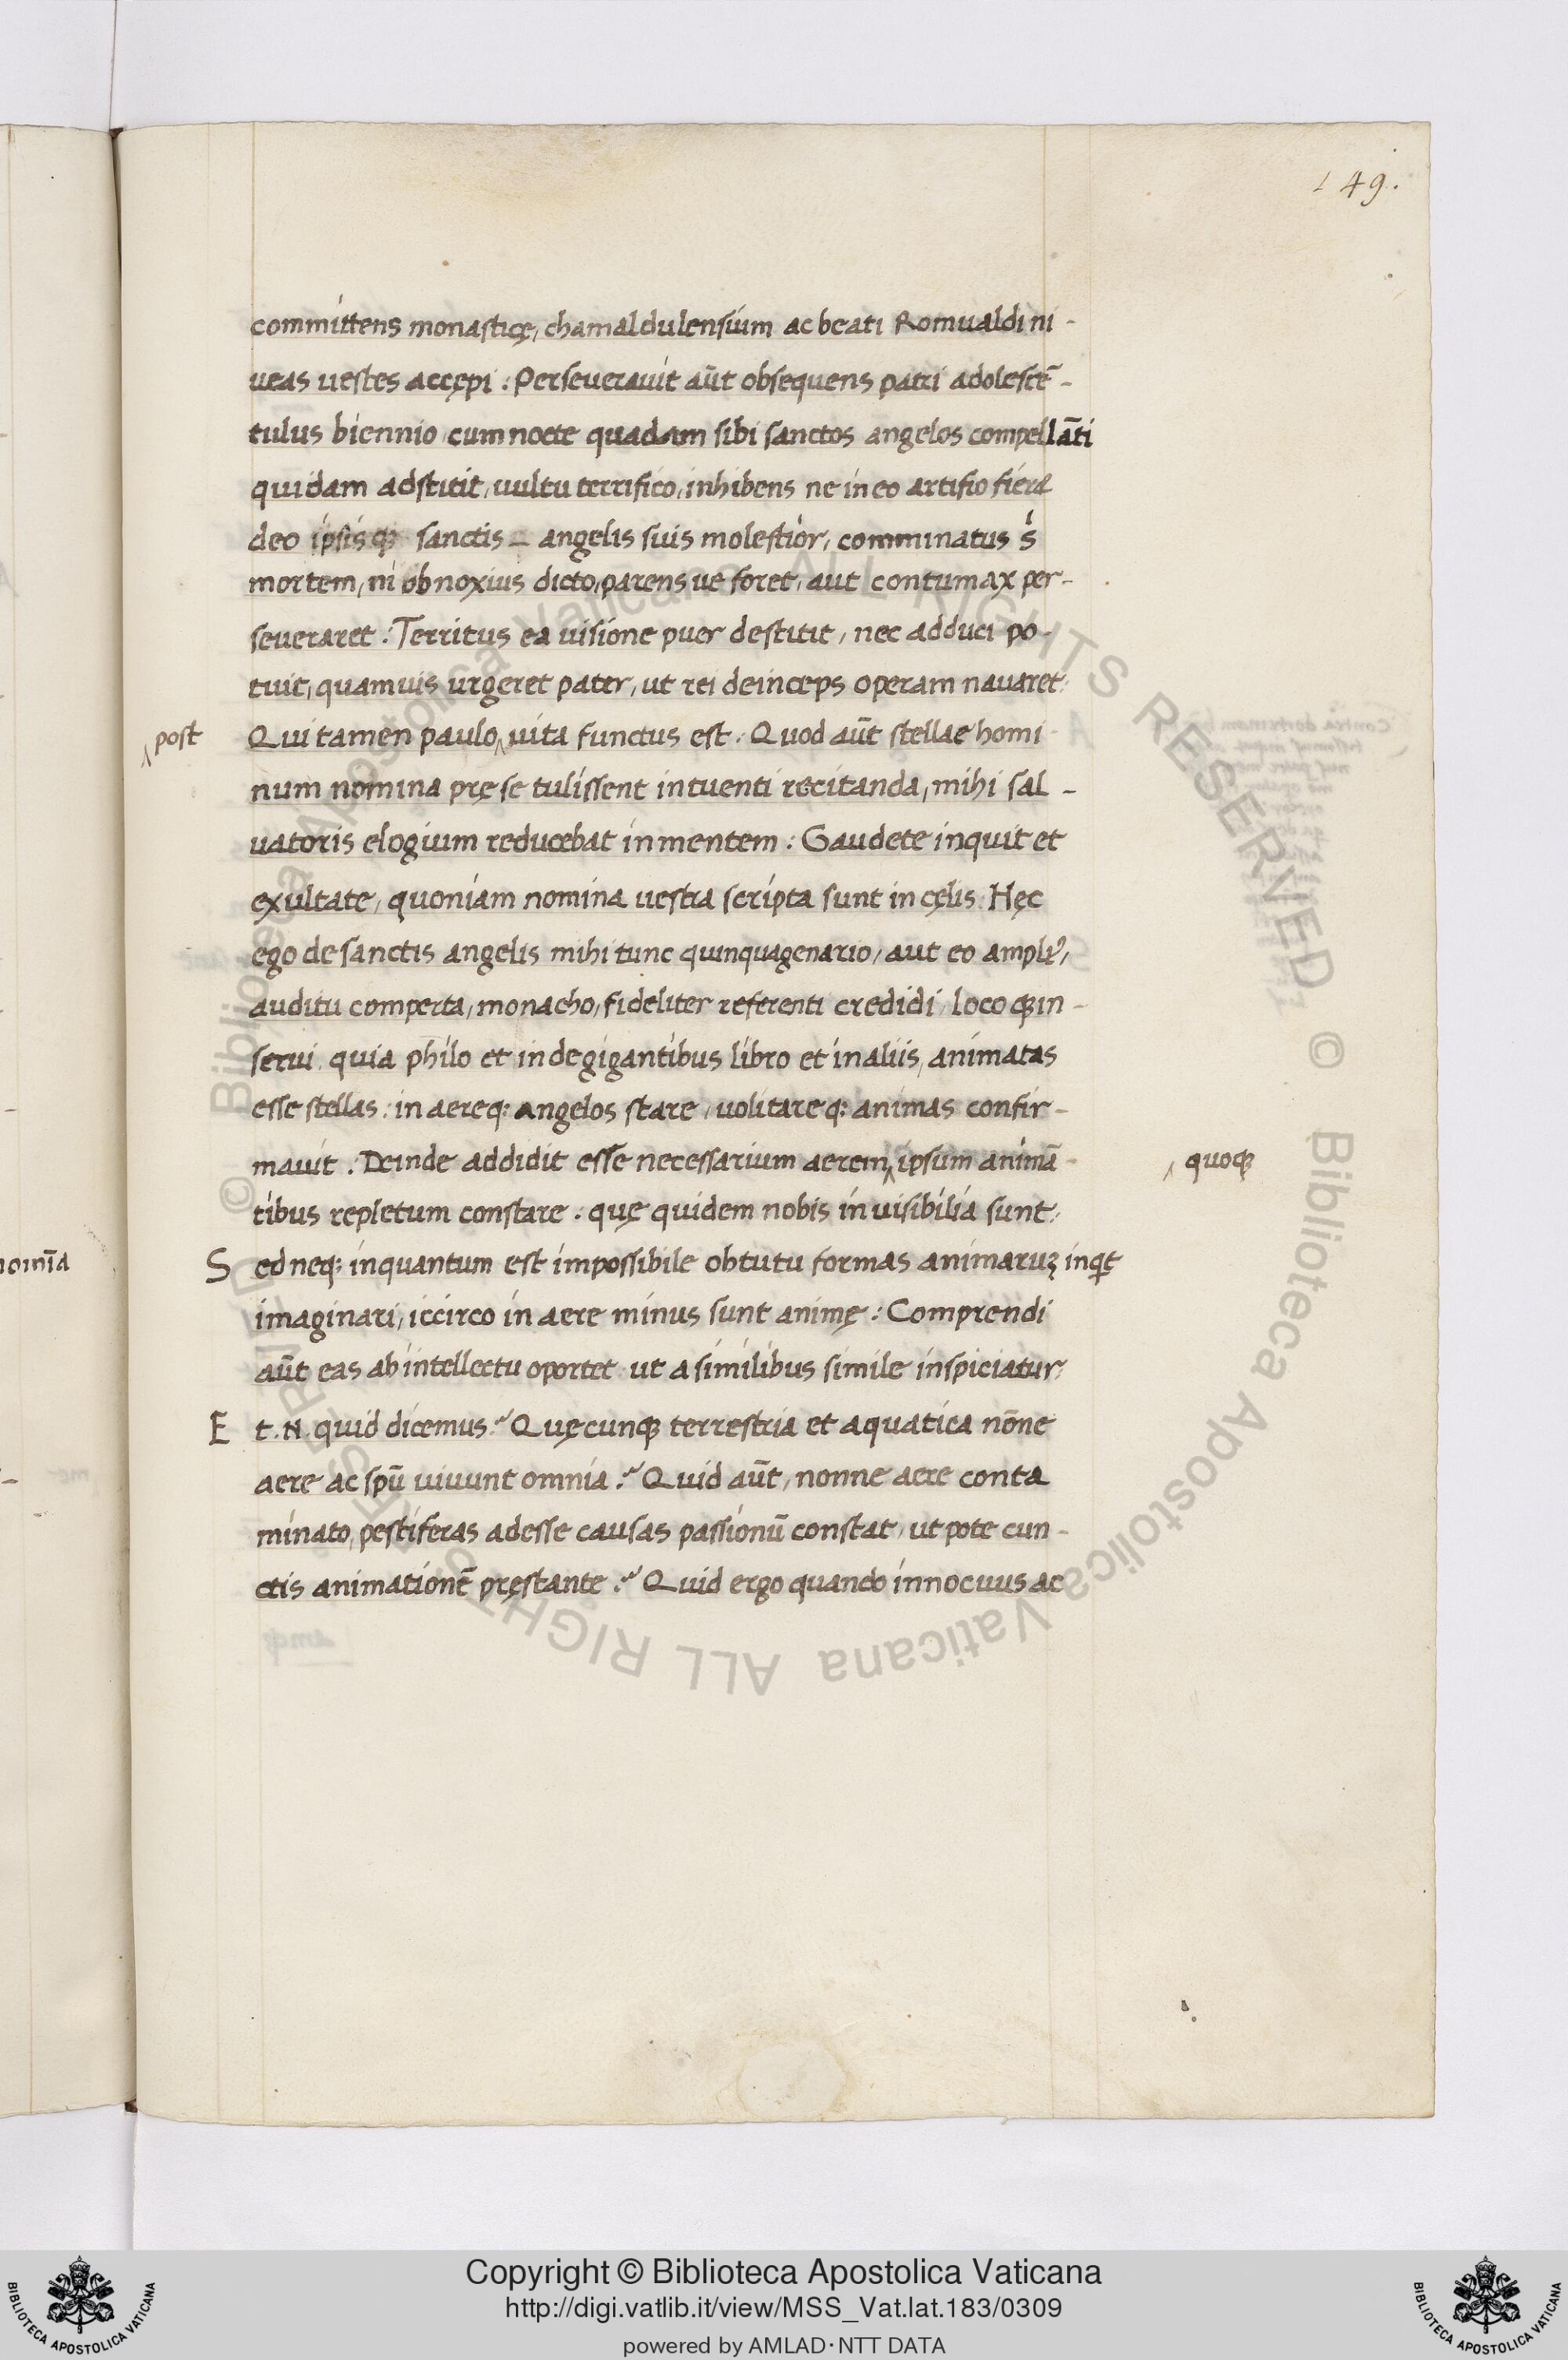 149.
committens monasticę, chamaldulensium ac beati Romualdi ni-
ueas uestes accępi : Perseuerauit aūt obsequens patri adolescē-
tulus biennio cum nocte quadam sibi sanctos angelos compellāti
quidam adstitit, uultu terrifico, inhibens ne in eo artifio fieret
deo ipsisqꝫ sanctis – angelis suis molestior, comminatus
mortem, ni obnoxius dicto, parens ue foret, aut contumax per-
seueraret : Territus ea uisione puer destitit, nec adduci po-
tuit, quamuis urgeret pater, ut rei deinceps operam nauaret:
post
Qui tamen paulo ‸ uita functus est : Quod aūt stellae homi-
num nomina prę se tulissent intuenti recitanda, mihi sal-
uatoris elogium reducebat in mentem : Gaudete inquit et
exultate, quoniam nomina uestra scripta sunt in cęlis : Hęc
ego de sanctis angelis mihi tunc quinquagenario, aut eo ampliꝰ,
auditu comperta, monacho, fideliter referenti credidi, locoqꝫ in-
serui quia philo et in de gigantibus libro et in aliis, animatas
esse stellas : in aereq: angelos stare, uolitareq: animas confir-
mauit . Deinde addidit esse necessarium aerem ‸ ipsum animā-
quoqꝫ
tibus repletum constare . quę quidem nobis inuisibilia sunt:
Sed neq: inquantum est impossibile obtutu formas animaruꝫ inqt
imaginari, iccirco in aere minus sunt animę : Comprendi
aūt eas ab intellectu oportet ut a similibus simile inspiciatur:
Et .N. quid dicemus? Quęcunqꝫ terrestria et aquatica nōne
aere ac spū uiuunt omnia? Quid aūt, nonne aere conta
minato, pestiferas adesse causas passionū constat, utpote cun-
ctis animationē pręstante? Quid ergo quando innocuus ac
nomīa
Copyright © Biblioteca Apostolica Vaticana
http://digi.vatlib.it/view/MSS_Vat.lat.183/0309
powered by AMLAD·NTT DATA
BIBLIOTECA APOSTOLICA VATICANA
BIBLIOTECA APOSTOLICA VATICANA
© Biblioteca Apostolica Vaticana ALL RIGHTS RESERVED © Biblioteca Apostolica Vaticana ALL RIGHTS RESERVED